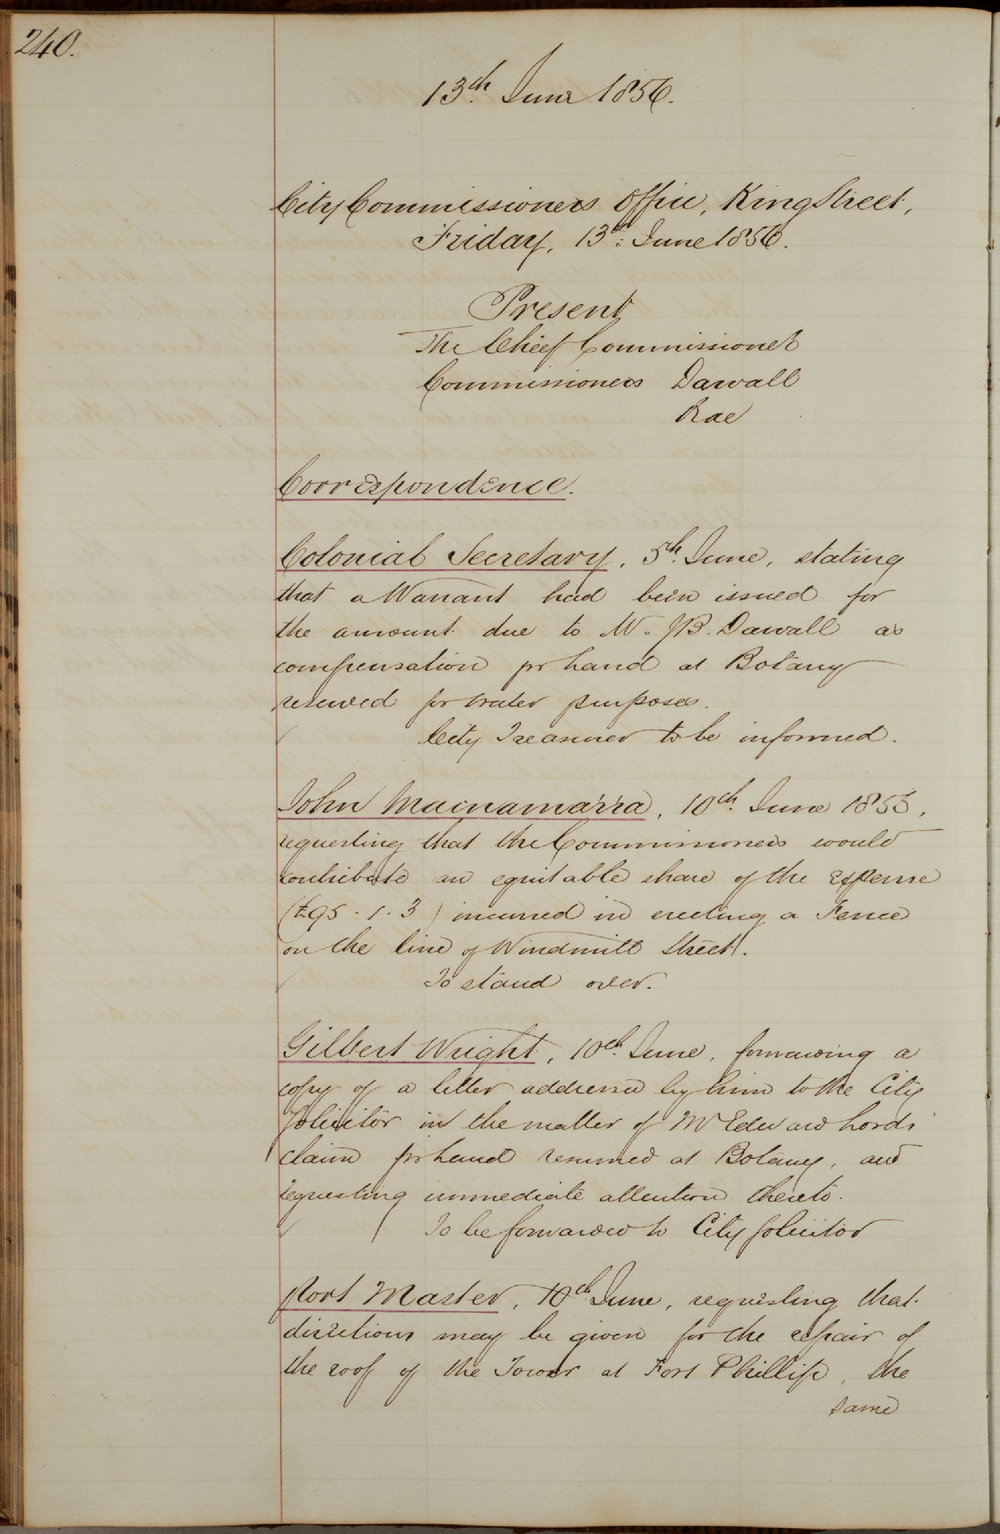 240.
13th June 1856.
City Commissioners Office, King Street,
Friday, 13th June 1856.
Present
The Chief Commissioner
Commissioners Darvall
Rae
Correspondence.
Colonial Secretary, 5th June, stating
that a Warrant had been issued for
the amount due to Mr. J.B. Darvall as
compensation for land at Botany
resumed for water purposes.
City Treasurer to be informed.
John Macnamarra, 10th June 1856,
requesting that the Commissioners would
contribute an equitable share of the expense
(£95.1.3) incurred in erecting a Fence
on the line of Windmill Street.
To stand over.
Gilbert Wright, 10th June, forwarding a
copy of a letter addressed by him to the City
Solicitor in the matter of Mr Edward Lords
claim for land resumed at Botany, and
requesting immediate attention thereto.
To be forwarded to City Solicitor
Port Master, 10th June, requesting that
directions may be given for the repair of
the roof of the Tower at Fort Phillip, the
same